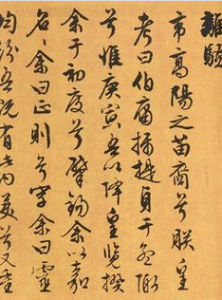 離騷
帝高陽之苗裔兮朕皇
考曰伯庸攝提貞于孟陬
兮惟庚寅吾以降皇覽揆
余于初度兮肇錫余以嘉
名〻余曰正則兮字余曰靈
均紛吾既有此内美兮又重